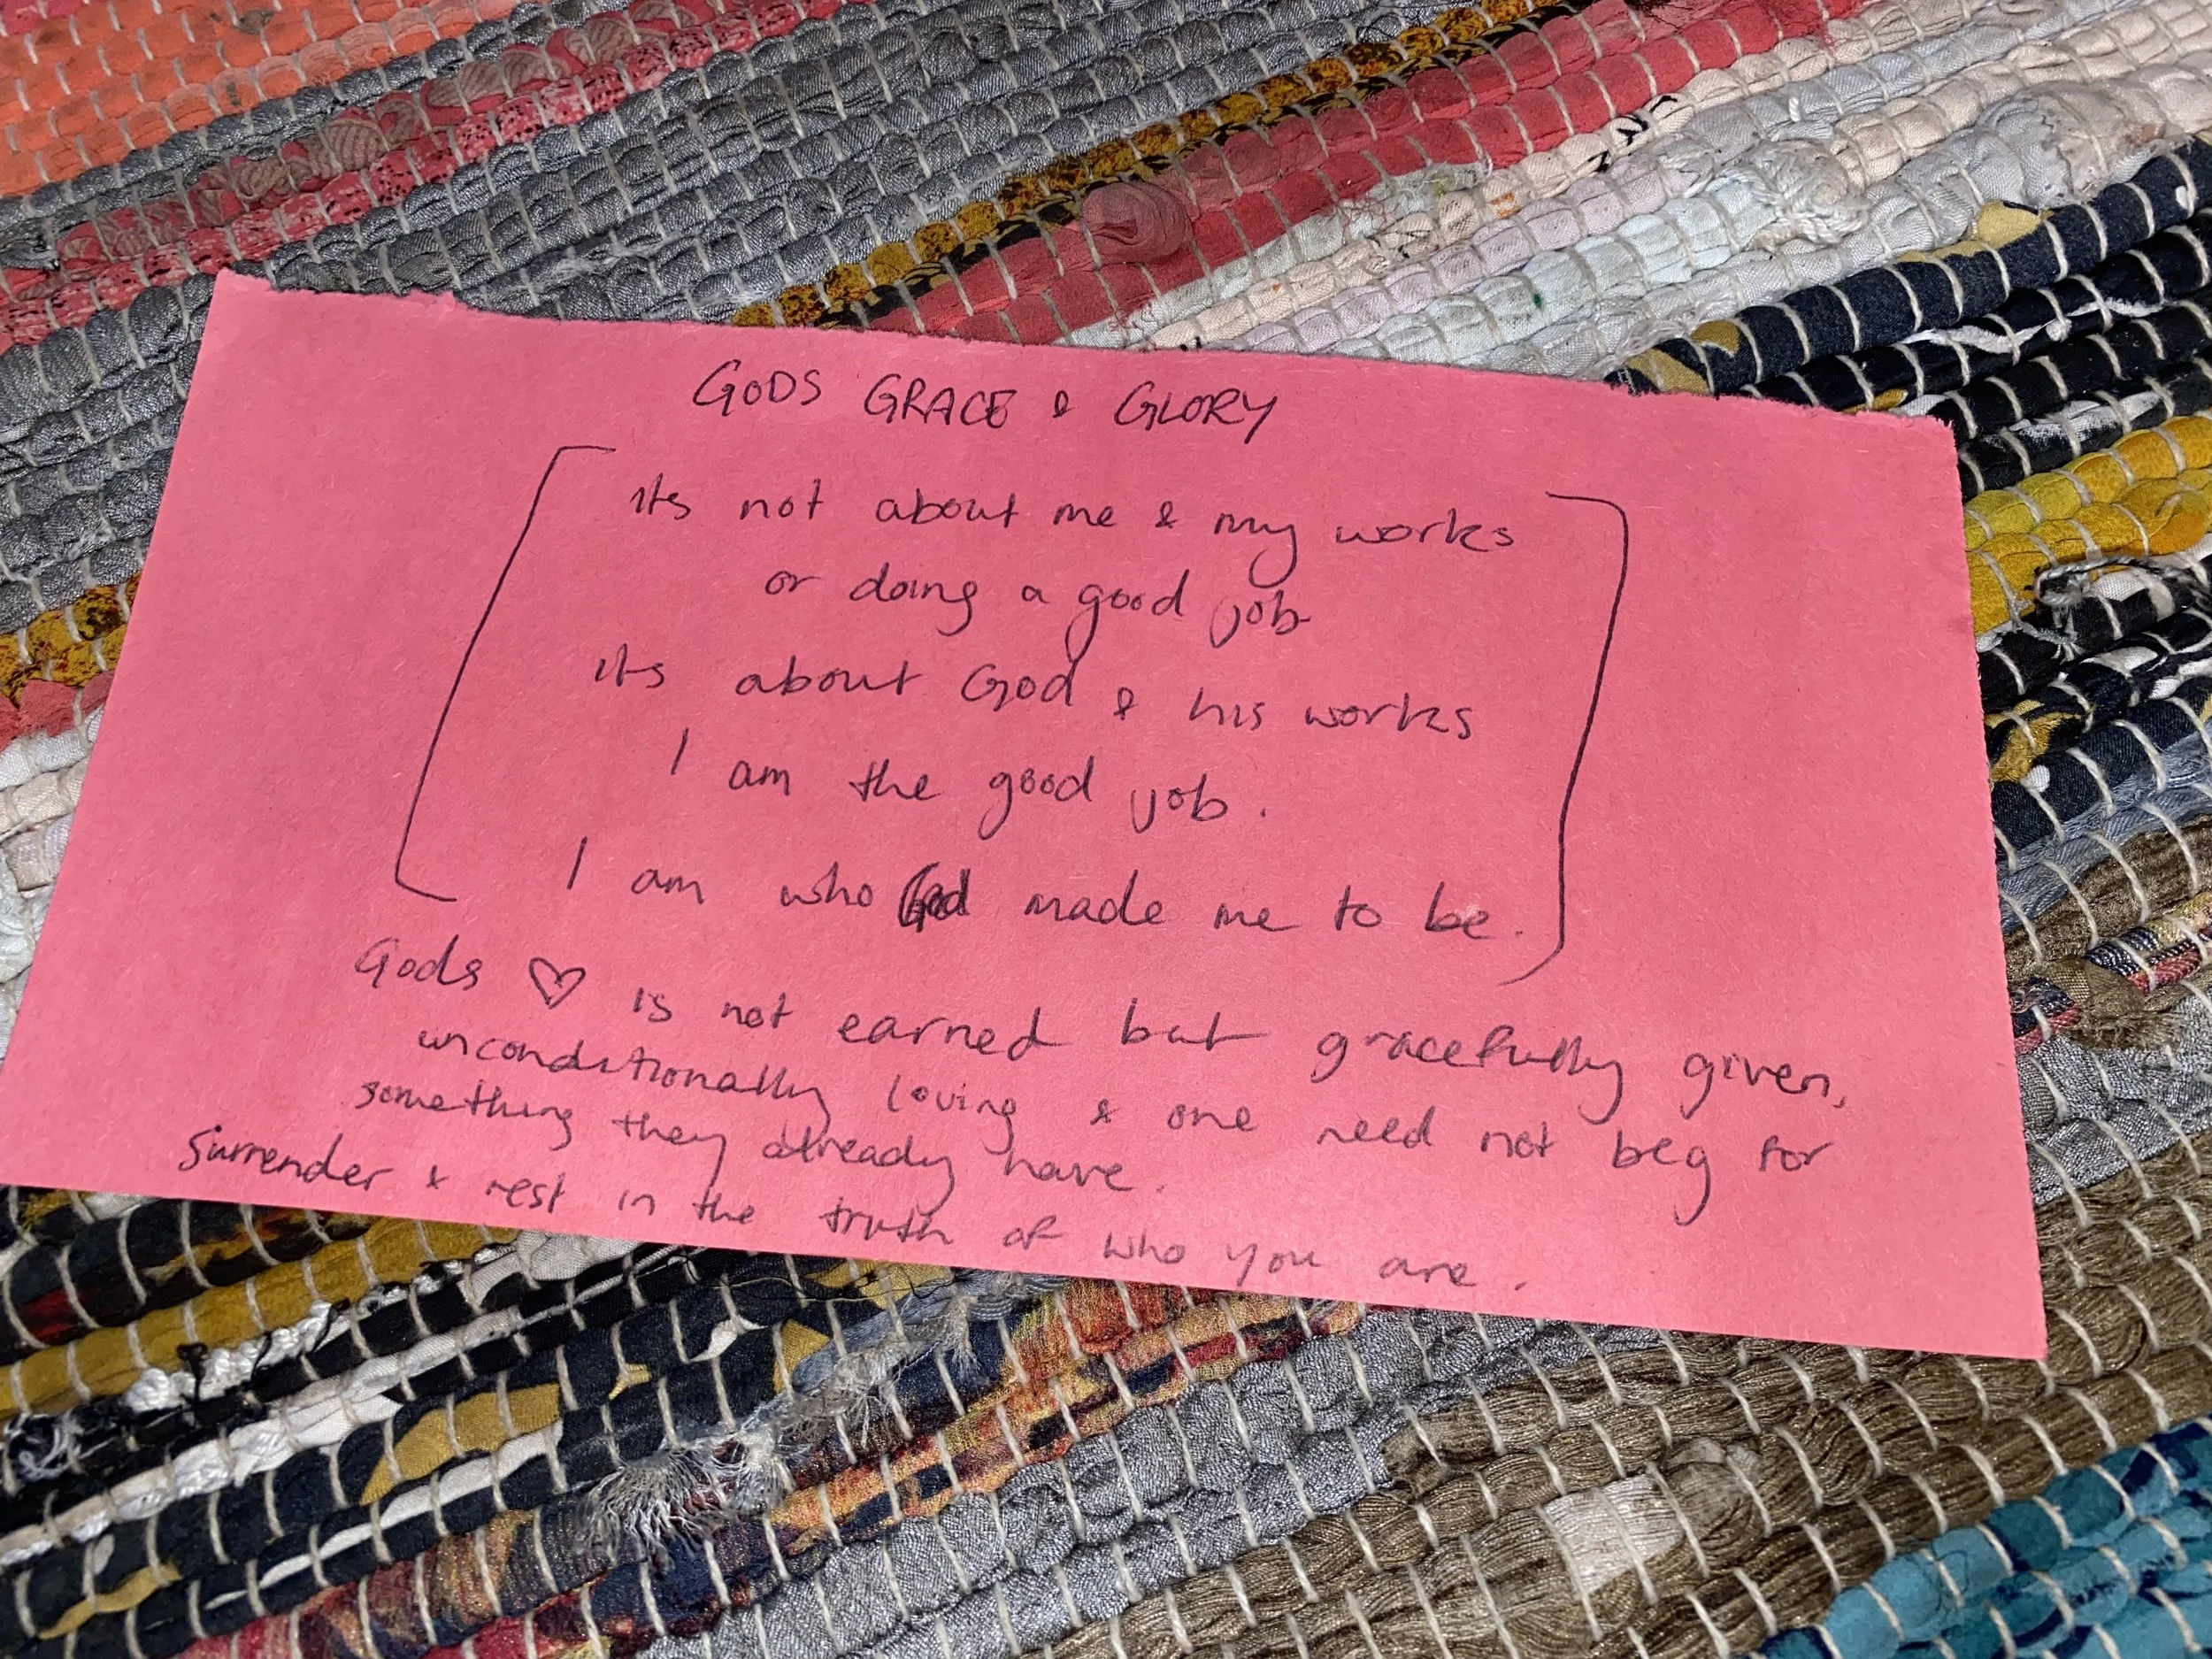 GODS GRACE & GLORY
its not about me & my works
or doing a good job
its about God & his works
I am the good job.
I am who God made me to be.
Gods ♡ is not earned but gracefully given,
unconditionally loving & one need not beg for
something they already have.
Surrender & rest in the truth of who you are.